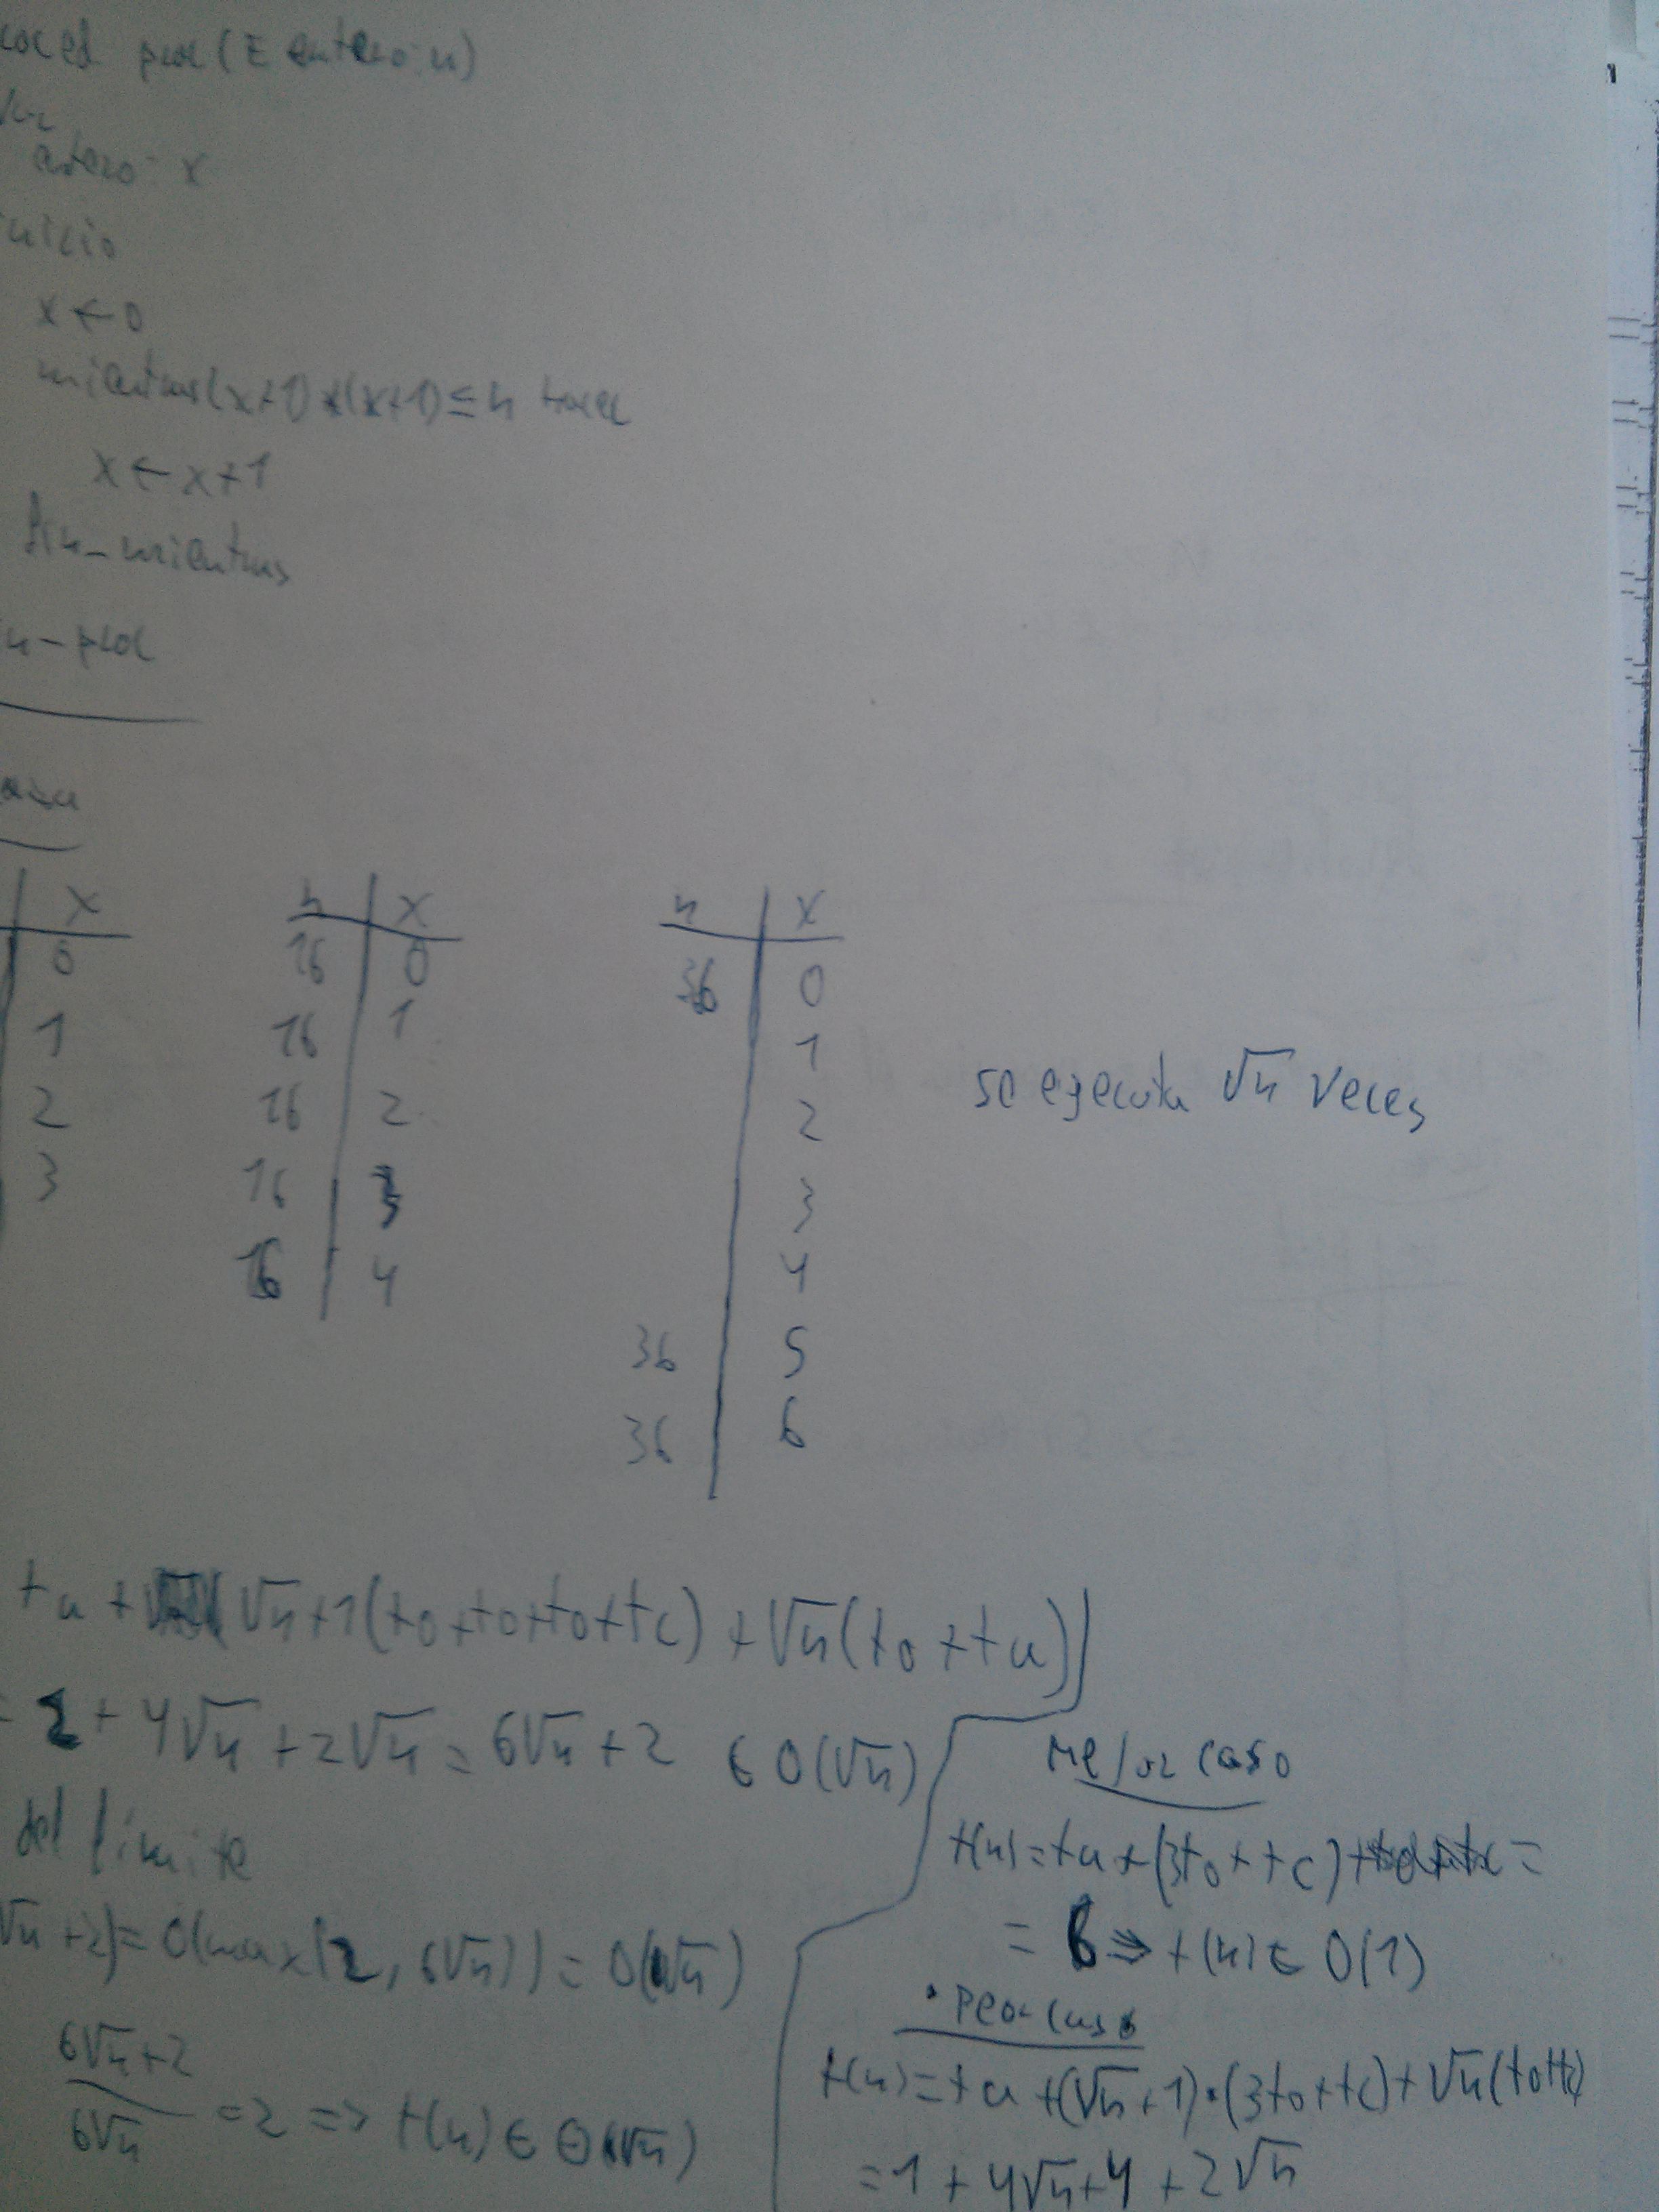 proc(E entero: n)
entero: x
inicio
x ← 0
mientras(x+1)*(x+1) ≤ n hacer
x ← x+1
fin_mientras
fin-proc
x n x n x
0 16 0 36 0
1 16 1 1
2 16 2 2
3 16 3 3
16 4 4
36 5
36 6
se ejecuta √n veces
ta + √n+1(to+to+to+tc) + √n(to+ta))
= 2 + 4√n + 2√n = 6√n + 2 ∈ O(√n)
del límite
√n+2)= O(max(2, 6√n)) = O(√n)
6√n+2
6√n
=2 => t(n) ∈ Θ(√n)
Mejor caso
t(n) = ta + (3to + tc) =
= 6 => t(n) ∈ O(1)
• Peor caso
t(n) = ta +(√n+1)·(3to+tc)+√n(to+
=1 + 4√n+4 + 2√n